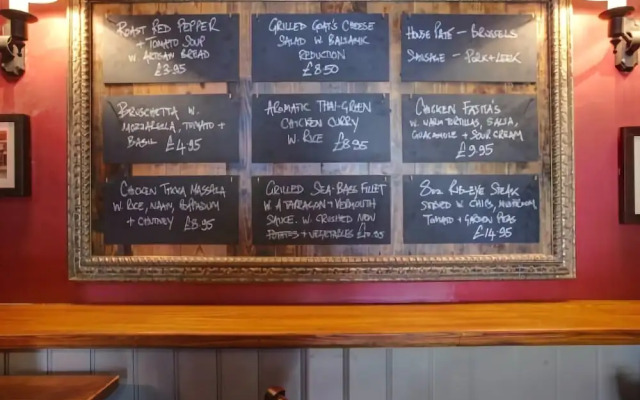 ROAST RED PEPPER
+ TOMATO SOUP
W. ARTISAN BREAD
£3.95
GRILLED GOAT'S CHEESE
SALAD W. BALSAMIC
REDUCTION
£8.50
HOUSE PATE - BRUSSELS
SAUSAGE - PORK + LEEK
BRUSCHETTA W.
MOZZARELLA, TOMATO +
BASIL £4.95
AROMATIC THAI-GREEN
CHICKEN CURRY
W. RICE £8.95
CHICKEN FAJITA'S
W. WARM TORTILLAS, SALSA,
GUACAMOLE + SOUR CREAM
£9.95
CHICKEN TIKKA MASSALA
W. RICE, NAAN, POPPADUM
+ CHUTNEY £8.95
GRILLED SEA-BASS FILLET
W. A TARRAGON + VERMOUTH
SAUCE. W. CRUSHED NEW
POTATOES + VEGETABLES £10.95
8oz RIB-EYE STEAK
SERVED W. CHIPS, MUSHROOM,
TOMATO + GARDEN PEAS
£14.95